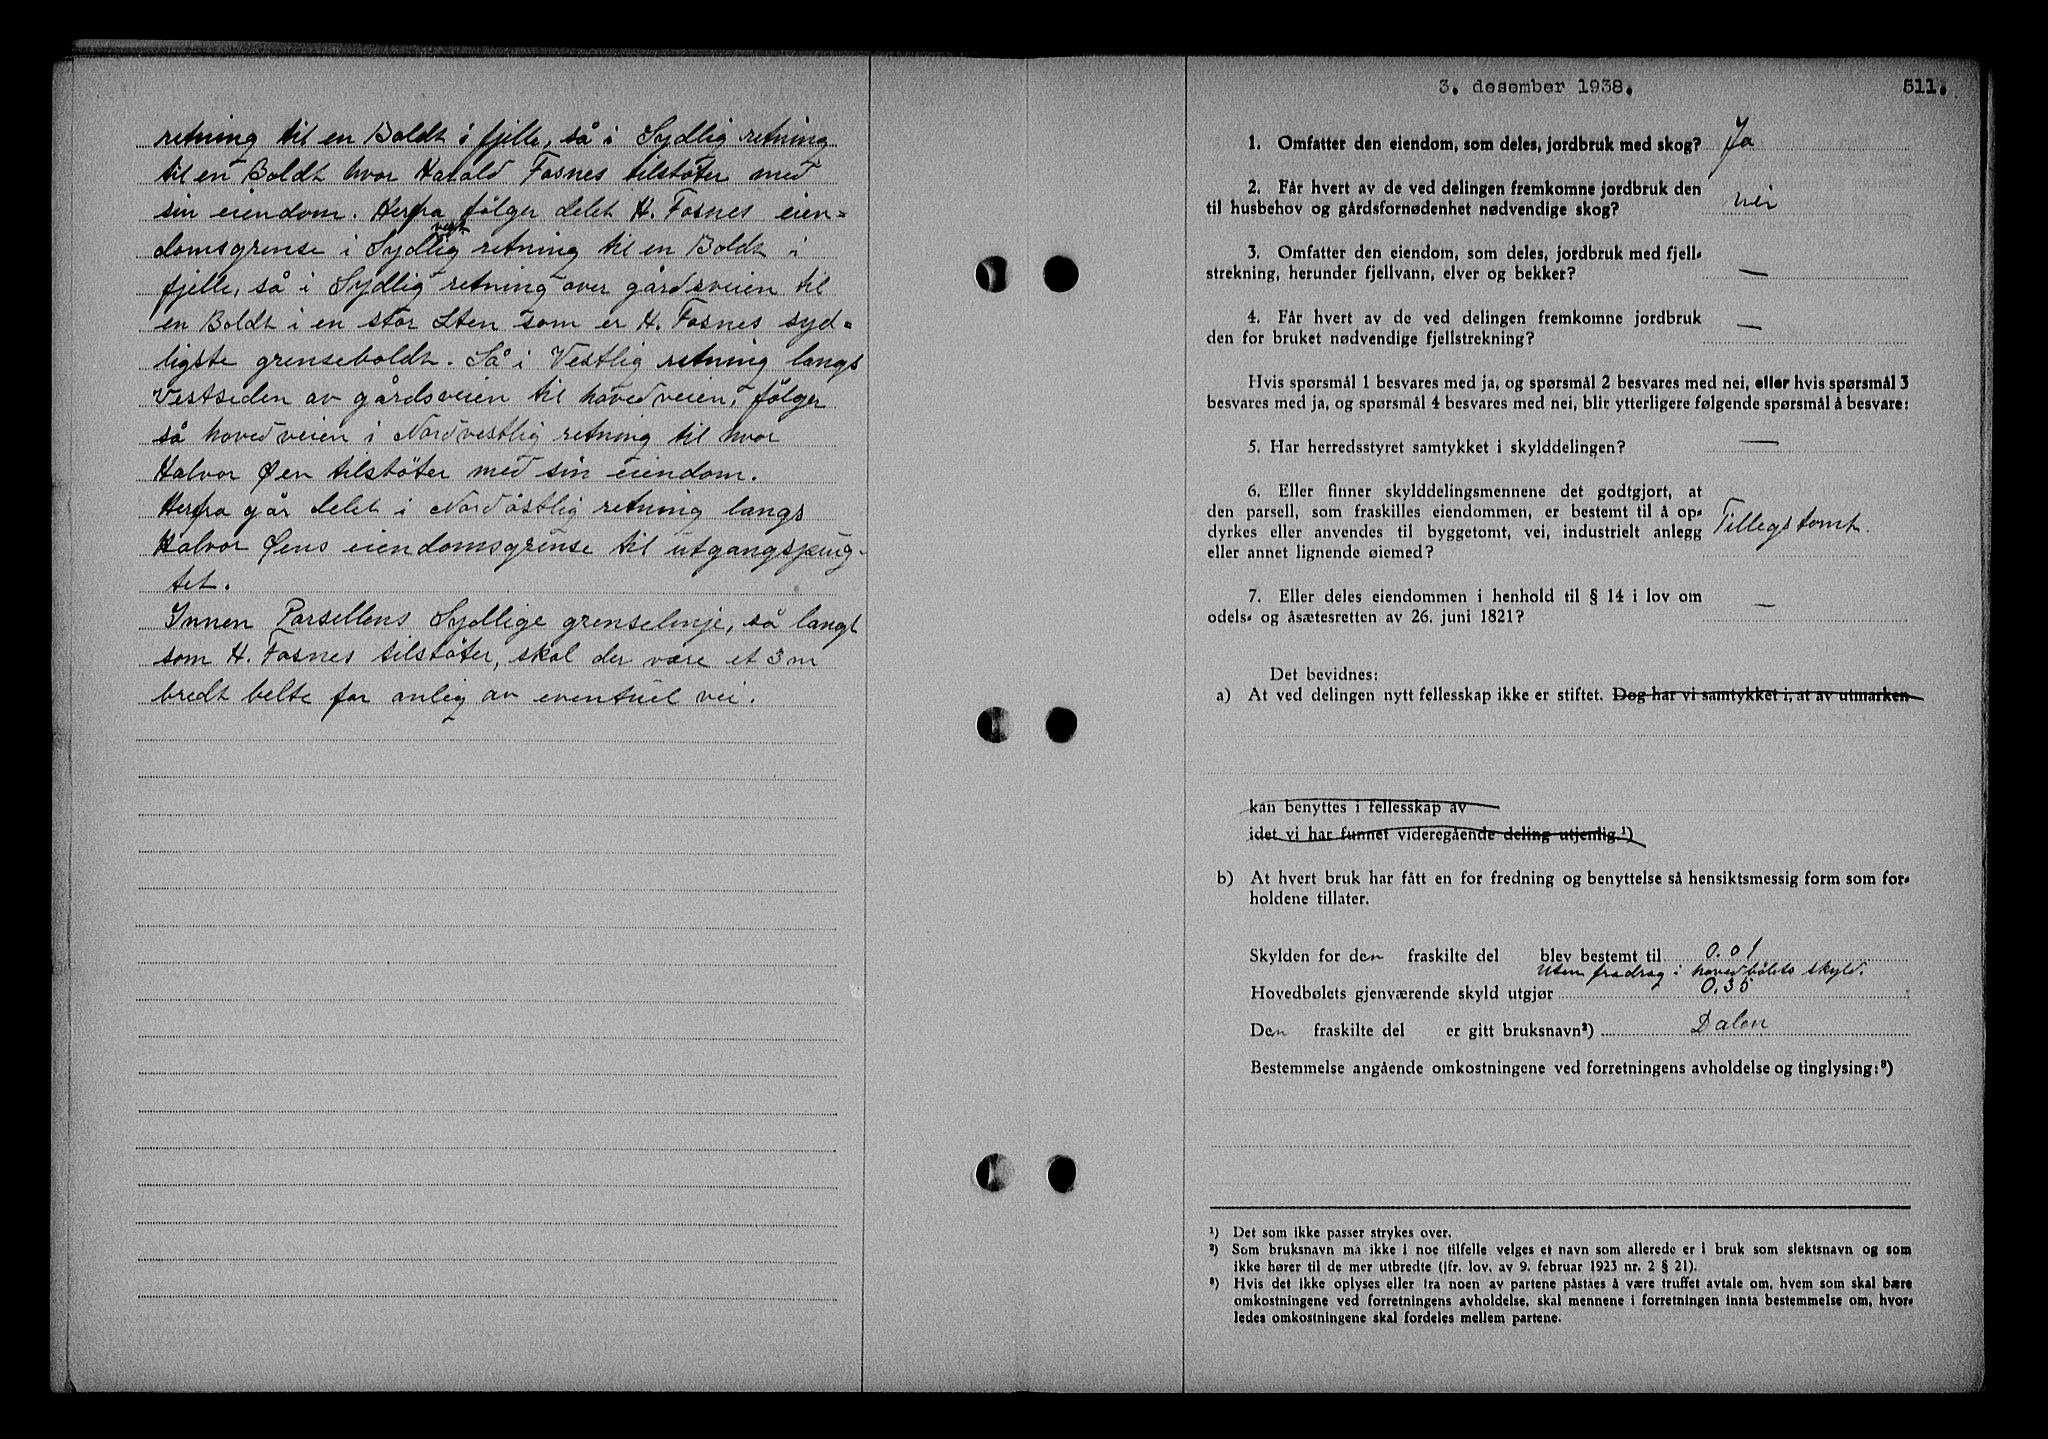 retning til en Boldt i fjelle, så i Sydlig retning
til en Boldt hvor Harald Fosnes tilstöter med
sin eiendom. Herfra følger delet H. Fosnes eien-
vest
domsgrense i Sydlig retning til en Boldt i
fjelle, så i Sydlig retning over gårdsveien til
en Boldt i en stor Sten som er H. Fosnes syd-
ligste grenseboldt. Så i Vestlig retning langs
Vestsiden av gårdsveien til hovedveien, følger
så hovedveien i Nordvestlig retning til hvor
Halvor Øen tilstöter med sin eiendom.
Herfra går delet i Nordöstlig retning langs
Halvor Øens eiendomsgrense til utgangspung-
tet.
Innen Parsellens Sydlige grenselinje, så langt
som H. Fosnes tilstöter, skal der være et 3 m
bredt belte for anlig av eventuel vei.
3. desember 1938.
511.
1. Omfatter den eiendom, som deles, jordbruk med skog? Ja
2. Får hvert av de ved delingen fremkomne jordbruk den
til husbehov og gårdsfornødenhet nødvendige skog? nei
3. Omfatter den eiendom, som deles, jordbruk med fjell-
strekning, herunder fjellvann, elver og bekker? —
4. Får hvert av de ved delingen fremkomne jordbruk
den for bruket nødvendige fjellstrekning? —
Hvis spørsmål 1 besvares med ja, og spørsmål 2 besvares med nei, eller hvis spørsmål 3
besvares med ja, og spørsmål 4 besvares med nei, blir ytterligere følgende spørsmål å besvare:
5. Har herredsstyret samtykket i skylddelingen? —
6. Eller finner skylddelingsmennene det godtgjort, at
den parsell, som fraskilles eiendommen, er bestemt til å op-
dyrkes eller anvendes til byggetomt, vei, industrielt anlegg
eller annet lignende øiemed? Tillegstomt.
7. Eller deles eiendommen i henhold til § 14 i lov om
odels- og åsætesretten av 26. juni 1821? —
Det bevidnes:
a) At ved delingen nytt fellesskap ikke er stiftet. Dog har vi samtykket i, at av utmarken
kan benyttes i fellesskap av
idet vi har funnet videregående deling utjenlig.¹)
b) At hvert bruk har fått en for fredning og benyttelse så hensiktsmessig form som for-
holdene tillater.
Skylden for den fraskilte del blev bestemt til 0.01
Uten fradrag i hovedbölets skyld.
Hovedbølets gjenværende skyld utgjør 0.35
Den fraskilte del er gitt bruksnavn²) Dalen
Bestemmelse angående omkostningene ved forretningens avholdelse og tinglysing:³)
¹) Det som ikke passer strykes over.
²) Som bruksnavn må ikke i noe tilfelle velges et navn som allerede er i bruk som slektsnavn og som
ikke hører til de mer utbredte (jfr. lov. av 9. februar 1923 nr. 2 § 21).
³) Hvis det ikke oplyses eller fra noen av partene påståes å være truffet avtale om, hvem som skal bære
omkostningene ved forretningens avholdelse, skal mennene i forretningen innta bestemmelse om, hvor-
ledes omkostningene skal fordeles mellem partene.